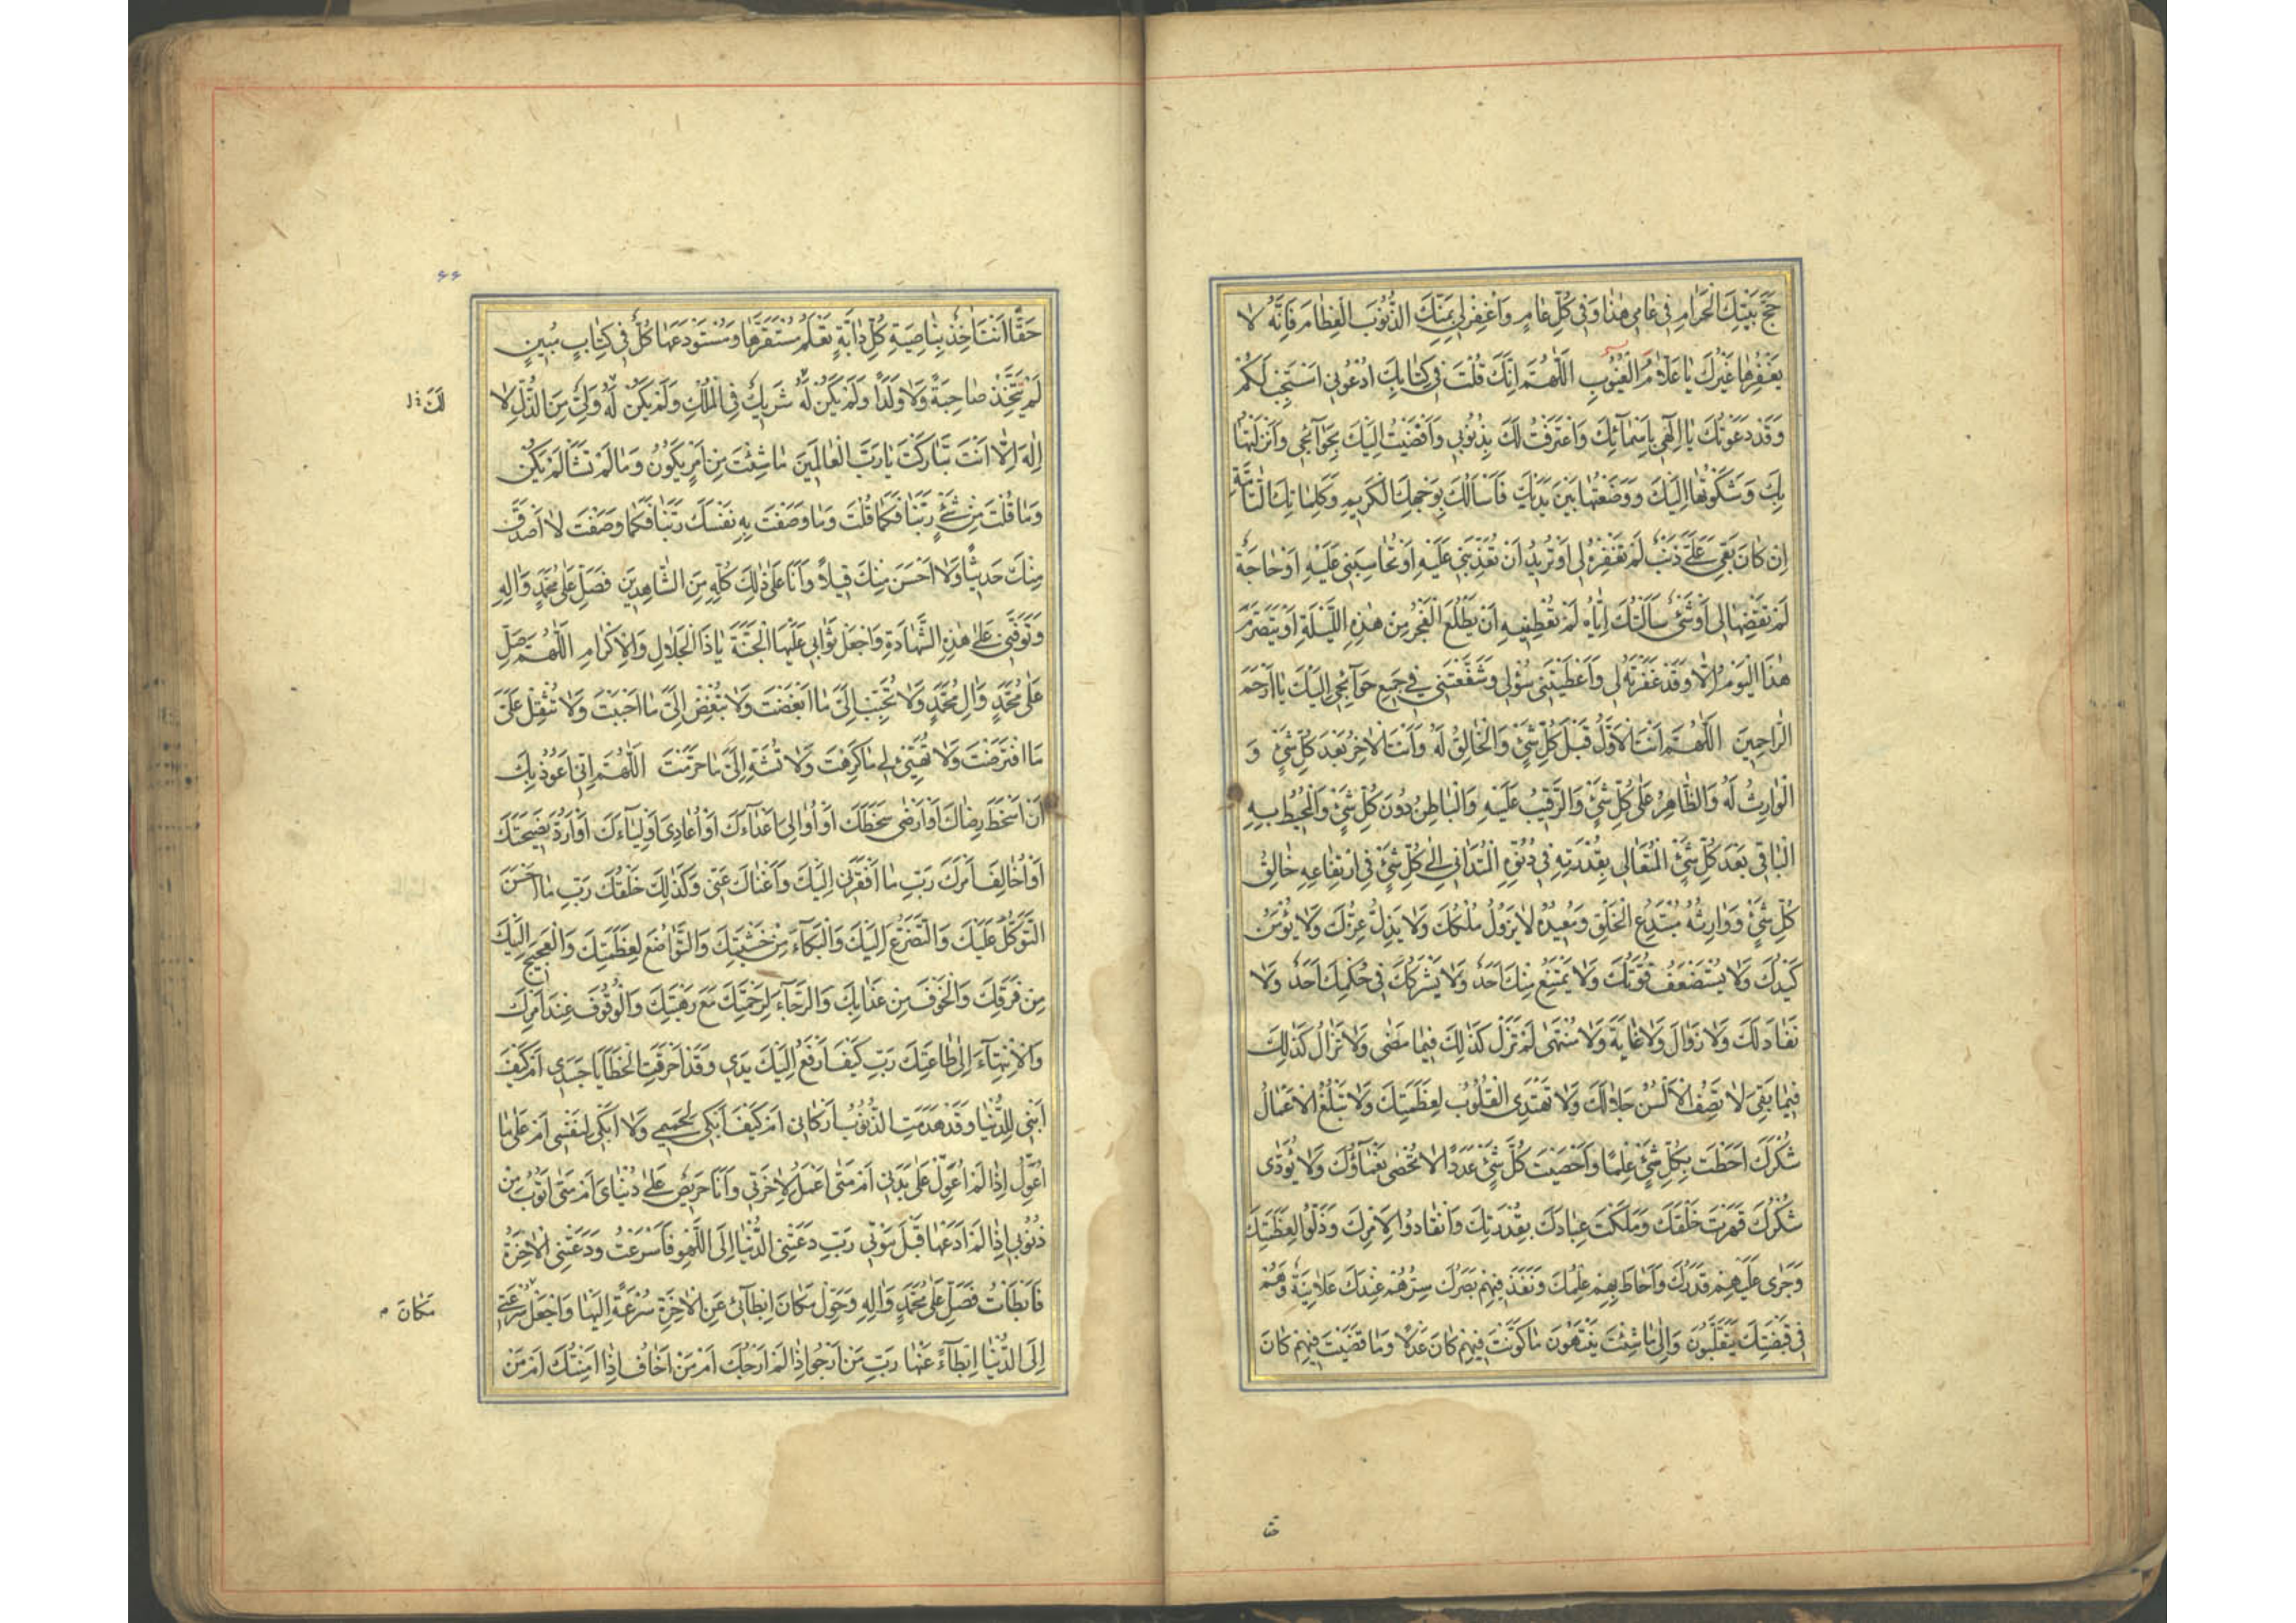 حَجَّ بَيْتِكَ الْحَرَامِ فِي عَامِي هٰذَا وَفِي كُلِّ عَامٍ وَاغْفِرْ لِي بِمَنِّكَ الذُّنُوبَ الْعِظَامَ فَاِنَّهُ لَا
يَغْفِرُهَا غَيْرُكَ يَا عَلَّامَ الْغُيُوبِ اَللّٰهُمَّ اِنَّكَ قُلْتَ فِي كِتَابِكَ اُدْعُونِي اَسْتَجِبْ لَكُمْ
وَقَدْ دَعَوْتُكَ يَا اِلٰهِي بِاَسْمَآئِكَ وَاعْتَرَفْتُ لَكَ بِذُنُوبِي وَاَفْضَيْتُ اِلَيْكَ بِحَوَآئِجِي وَاَنْزَلْتُهَا
بِكَ وَشَكَوْتُهَا اِلَيْكَ وَوَضَعْتُهَا بَيْنَ يَدَيْكَ فَاَسْاَلُكَ بِوَجْهِكَ الْكَرِيمِ وَكَلِمَاتِكَ التَّآمَّةِ
اِنْ كَانَ بَقِيَ عَلَيَّ ذَنْبٌ لَمْ تَغْفِرْهُ لِي اَوْ تُرِيدُ اَنْ تُعَذِّبَنِي عَلَيْهِ اَوْ تُحَاسِبَنِي عَلَيْهِ اَوْ حَاجَةٌ
لَمْ تَقْضِهَا لِي اَوْ شَيْءٌ سَاَلْتُكَ اِيَّاهُ لَمْ تُعْطِنِيهِ اَنْ يَطْلُعَ الْفَجْرُ مِنْ هٰذِهِ اللَّيْلَةِ اَوْ يَتَصَرَّمَ
هٰذَا الْيَوْمُ اِلَّا وَقَدْ غَفَرْتَهُ لِي وَاَعْطَيْتَنِي سُؤْلِي وَشَفَّعْتَنِي فِي جَمِيعِ حَوَآئِجِي اِلَيْكَ يَا اَرْحَمَ
الرَّاحِمِينَ اَللّٰهُمَّ اَنْتَ الْاَوَّلُ قَبْلَ كُلِّ شَيْءٍ وَالْخَالِقُ لَهُ وَاَنْتَ الْاٰخِرُ بَعْدَ كُلِّ شَيْءٍ وَ
الْوَارِثُ لَهُ وَالظَّاهِرُ عَلٰى كُلِّ شَيْءٍ وَالرَّقِيبُ عَلَيْهِ وَالْبَاطِنُ دُونَ كُلِّ شَيْءٍ وَالْمُحِيطُ بِهِ
الْبَاقِي بَعْدَ كُلِّ شَيْءٍ الْمُتَعَالِي بِقُدْرَتِهِ فِي دُنُوِّهِ الْمُتَدَانِي اِلٰى كُلِّ شَيْءٍ فِي ارْتِفَاعِهِ خَالِقُ
كُلِّ شَيْءٍ وَوَارِثُهُ مُبْتَدِعُ الْخَلْقِ وَمُعِيدُهُ لَا يَزُولُ مُلْكُكَ وَلَا يَذِلُّ عِزُّكَ وَلَا يُؤْمَنُ
كَيْدُكَ وَلَا يُسْتَضْعَفُ قُوَّتُكَ وَلَا يَمْتَنِعُ مِنْكَ اَحَدٌ وَلَا يَشْرَكُكَ فِي حُكْمِكَ اَحَدٌ وَلَا
نَفَادَ لَكَ وَلَا زَوَالَ وَلَا غَايَةَ وَلَا مُنْتَهٰى لَمْ تَزَلْ كَذٰلِكَ فِيمَا مَضٰى وَلَا تَزَالُ كَذٰلِكَ
فِيمَا بَقِيَ لَا تَصِفُ الْاَلْسُنُ جَلَالَكَ وَلَا تَهْتَدِي الْقُلُوبُ لِعَظَمَتِكَ وَلَا تَبْلُغُ الْاَعْمَالُ
شُكْرَكَ اَحَطْتَ بِكُلِّ شَيْءٍ عِلْمًا وَاَحْصَيْتَ كُلَّ شَيْءٍ عَدَدًا لَا تُحْصٰى نَعْمَاؤُكَ وَلَا يُؤَدّٰى
شُكْرُكَ قَهَرْتَ خَلْقَكَ وَمَلَكْتَ عِبَادَكَ بِقُدْرَتِكَ وَانْقَادُوا لِاَمْرِكَ وَذَلُّوا لِعَظَمَتِكَ
وَجَرٰى عَلَيْهِمْ قَدَرُكَ وَاَحَاطَ بِهِمْ عِلْمُكَ وَنَفَذَ فِيهِمْ بَصَرُكَ سِرُّهُمْ عِنْدَكَ عَلَانِيَةٌ وَهُمْ
فِي قَبْضَتِكَ يَتَقَلَّبُونَ وَاِلٰى مَا شِئْتَ يَنْتَهُونَ مَا كَوَّنْتَ فِيهِمْ كَانَ عَدْلًا وَمَا قَضَيْتَ فِيهِمْ كَانَ
حقا
۶۶
حَقًّا اَنْتَ اٰخِذٌ بِنَاصِيَةِ كُلِّ دَابَّةٍ تَعْلَمُ مُسْتَقَرَّهَا وَمُسْتَوْدَعَهَا كُلٌّ فِي كِتَابٍ مُبِينٍ
لَمْ يَتَّخِذْ صَاحِبَةً وَلَا وَلَدًا وَلَمْ يَكُنْ لَهُ شَرِيكٌ فِي الْمُلْكِ وَلَمْ يَكُنْ لَهُ وَلِيٌّ مِنَ الذُّلِّ لَا
لَكَ
اِلٰهَ اِلَّا اَنْتَ تَبَارَكْتَ يَا رَبَّ الْعَالَمِينَ مَا شِئْتَ مِنْ اَمْرٍ يَكُونُ وَمَا لَمْ تَشَأْ لَمْ يَكُنْ
وَمَا قُلْتَ مِنْ شَيْءٍ رَبَّنَا فَكَمَا قُلْتَ وَمَا وَصَفْتَ بِهِ نَفْسَكَ رَبَّنَا فَكَمَا وَصَفْتَ لَا اَصْدَقَ
مِنْكَ حَدِيثًا وَلَا اَحْسَنَ مِنْكَ قِيلًا وَاَنَا عَلٰى ذٰلِكَ كُلِّهِ مِنَ الشَّاهِدِينَ فَصَلِّ عَلٰى مُحَمَّدٍ وَاٰلِهِ
وَتَوَفَّنِي عَلٰى هٰذِهِ الشَّهَادَةِ وَاجْعَلْ ثَوَابِي عَلَيْهَا الْجَنَّةَ يَا ذَا الْجَلَالِ وَالْاِكْرَامِ اَللّٰهُمَّ صَلِّ
عَلٰى مُحَمَّدٍ وَاٰلِ مُحَمَّدٍ وَلَا تُحَبِّبْ اِلَيَّ مَا اَبْغَضْتَ وَلَا تُبَغِّضْ اِلَيَّ مَا اَحْبَبْتَ وَلَا تُثْقِلْ عَلَيَّ
مَا افْتَرَضْتَ وَلَا تُهَيِّئْ لِي مَا كَرِهْتَ وَلَا تُشَهِّ اِلَيَّ مَا حَرَّمْتَ اَللّٰهُمَّ اِنِّي اَعُوذُ بِكَ
اَنْ اَسْخَطَ رِضَاكَ اَوْ اَرْضٰى سَخَطَكَ اَوْ اُوَالِيَ اَعْدَآءَكَ اَوْ اُعَادِيَ اَوْلِيَآءَكَ اَوْ اَرُدَّ نَصِيحَتَكَ
اَوْ اُخَالِفَ اَمْرَكَ رَبِّ مَا اَفْقَرَنِي اِلَيْكَ وَاَغْنَاكَ عَنِّي وَكَذٰلِكَ خَلْقُكَ رَبِّ مَا اَحْسَنَ
التَّوَكُّلَ عَلَيْكَ وَالتَّضَرُّعَ اِلَيْكَ وَالْبُكَآءَ مِنْ خَشْيَتِكَ وَالتَّوَاضُعَ لِعَظَمَتِكَ وَالْعَجِيجَ اِلَيْكَ
مِنْ فَرَقِكَ وَالْخَوْفَ مِنْ عَذَابِكَ وَالرَّجَآءَ لِرَحْمَتِكَ مَعَ رَهْبَتِكَ وَالْوُقُوفَ عِنْدَ اَمْرِكَ
وَالْاِنْتِهَآءَ اِلٰى طَاعَتِكَ رَبِّ كَيْفَ اَرْفَعُ اِلَيْكَ يَدِي وَقَدْ اَحْرَقَتِ الْخَطَايَا جَسَدِي اَمْ كَيْفَ
اَبْنِي لِلدُّنْيَا وَقَدْ هَدَمَتِ الذُّنُوبُ اَرْكَانِي اَمْ كَيْفَ اَبْكِي لِحَمِيمِي وَلَا اَبْكِي لِنَفْسِي اَمْ عَلٰى مَا
اُعَوِّلُ اِذَا لَمْ اُعَوِّلْ عَلٰى بَدَنِي اَمْ مَتٰى اَعْمَلُ لِاٰخِرَتِي وَاَنَا حَرِيصٌ عَلٰى دُنْيَايَ اَمْ مَتٰى اَتُوبُ مِنْ
ذُنُوبِي اِذَا لَمْ اَدَعْهَا قَبْلَ مَوْتِي رَبِّ دَعَتْنِي الدُّنْيَا اِلَى اللَّهْوِ فَاَسْرَعْتُ وَدَعَتْنِي الْاٰخِرَةُ
فَاَبْطَاْتُ فَصَلِّ عَلٰى مُحَمَّدٍ وَاٰلِهِ وَحَوِّلْ مَكَانَ اِبْطَآئِي عَنِ الْاٰخِرَةِ سُرْعَةً اِلَيْهَا وَاجْعَلْ سُرْعَتِي
مَكَانَ
اِلَى الدُّنْيَا اِبْطَآءً عَنْهَا رَبِّ مَنْ اَرْجُو اِذَا لَمْ اَرْجُكَ اَمْ مَنْ اَخَافُ اِذَا اَمِنْتُكَ اَمْ مَنْ